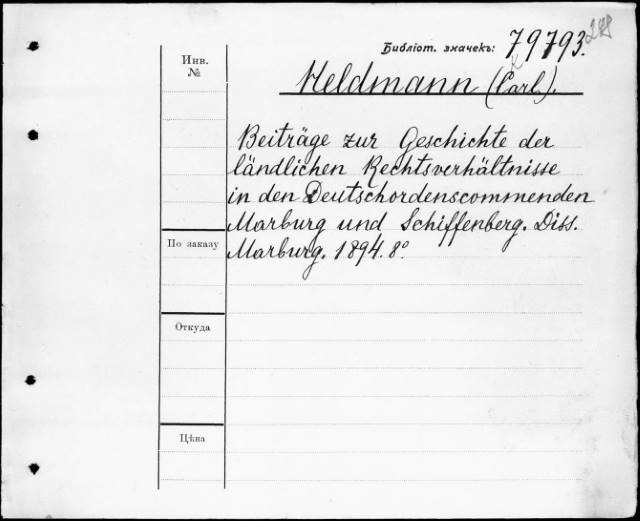 288
Библіот. значекъ: 79793.
Инв. №
Heldmann (Carl).
Beiträge zur Geschichte der
ländlichen Rechtsverhältnisse
in den Deutschordenscommenden
Marburg und Schiffenberg. Diss.
Marburg. 1894. 8°.
По заказу
Откуда
Цѣна